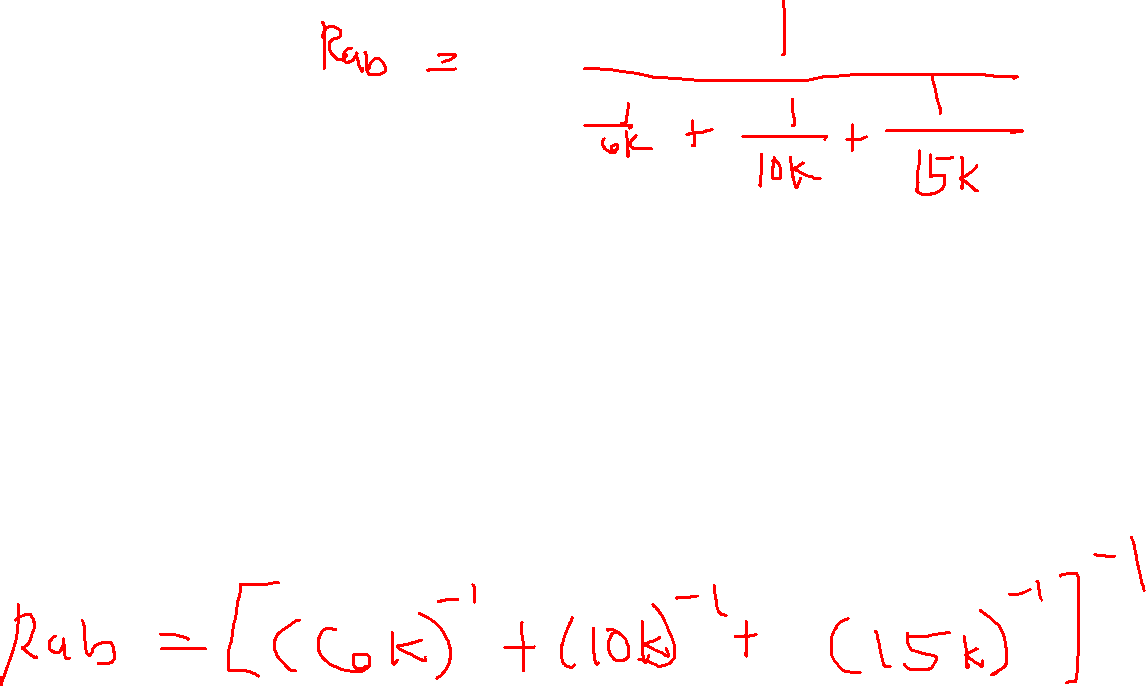 Rab = 1 / (1/6k + 1/10k + 1/15k)
Rab = [((6k)^-1 + (10k)^-1 + (15k)^-1]^-1